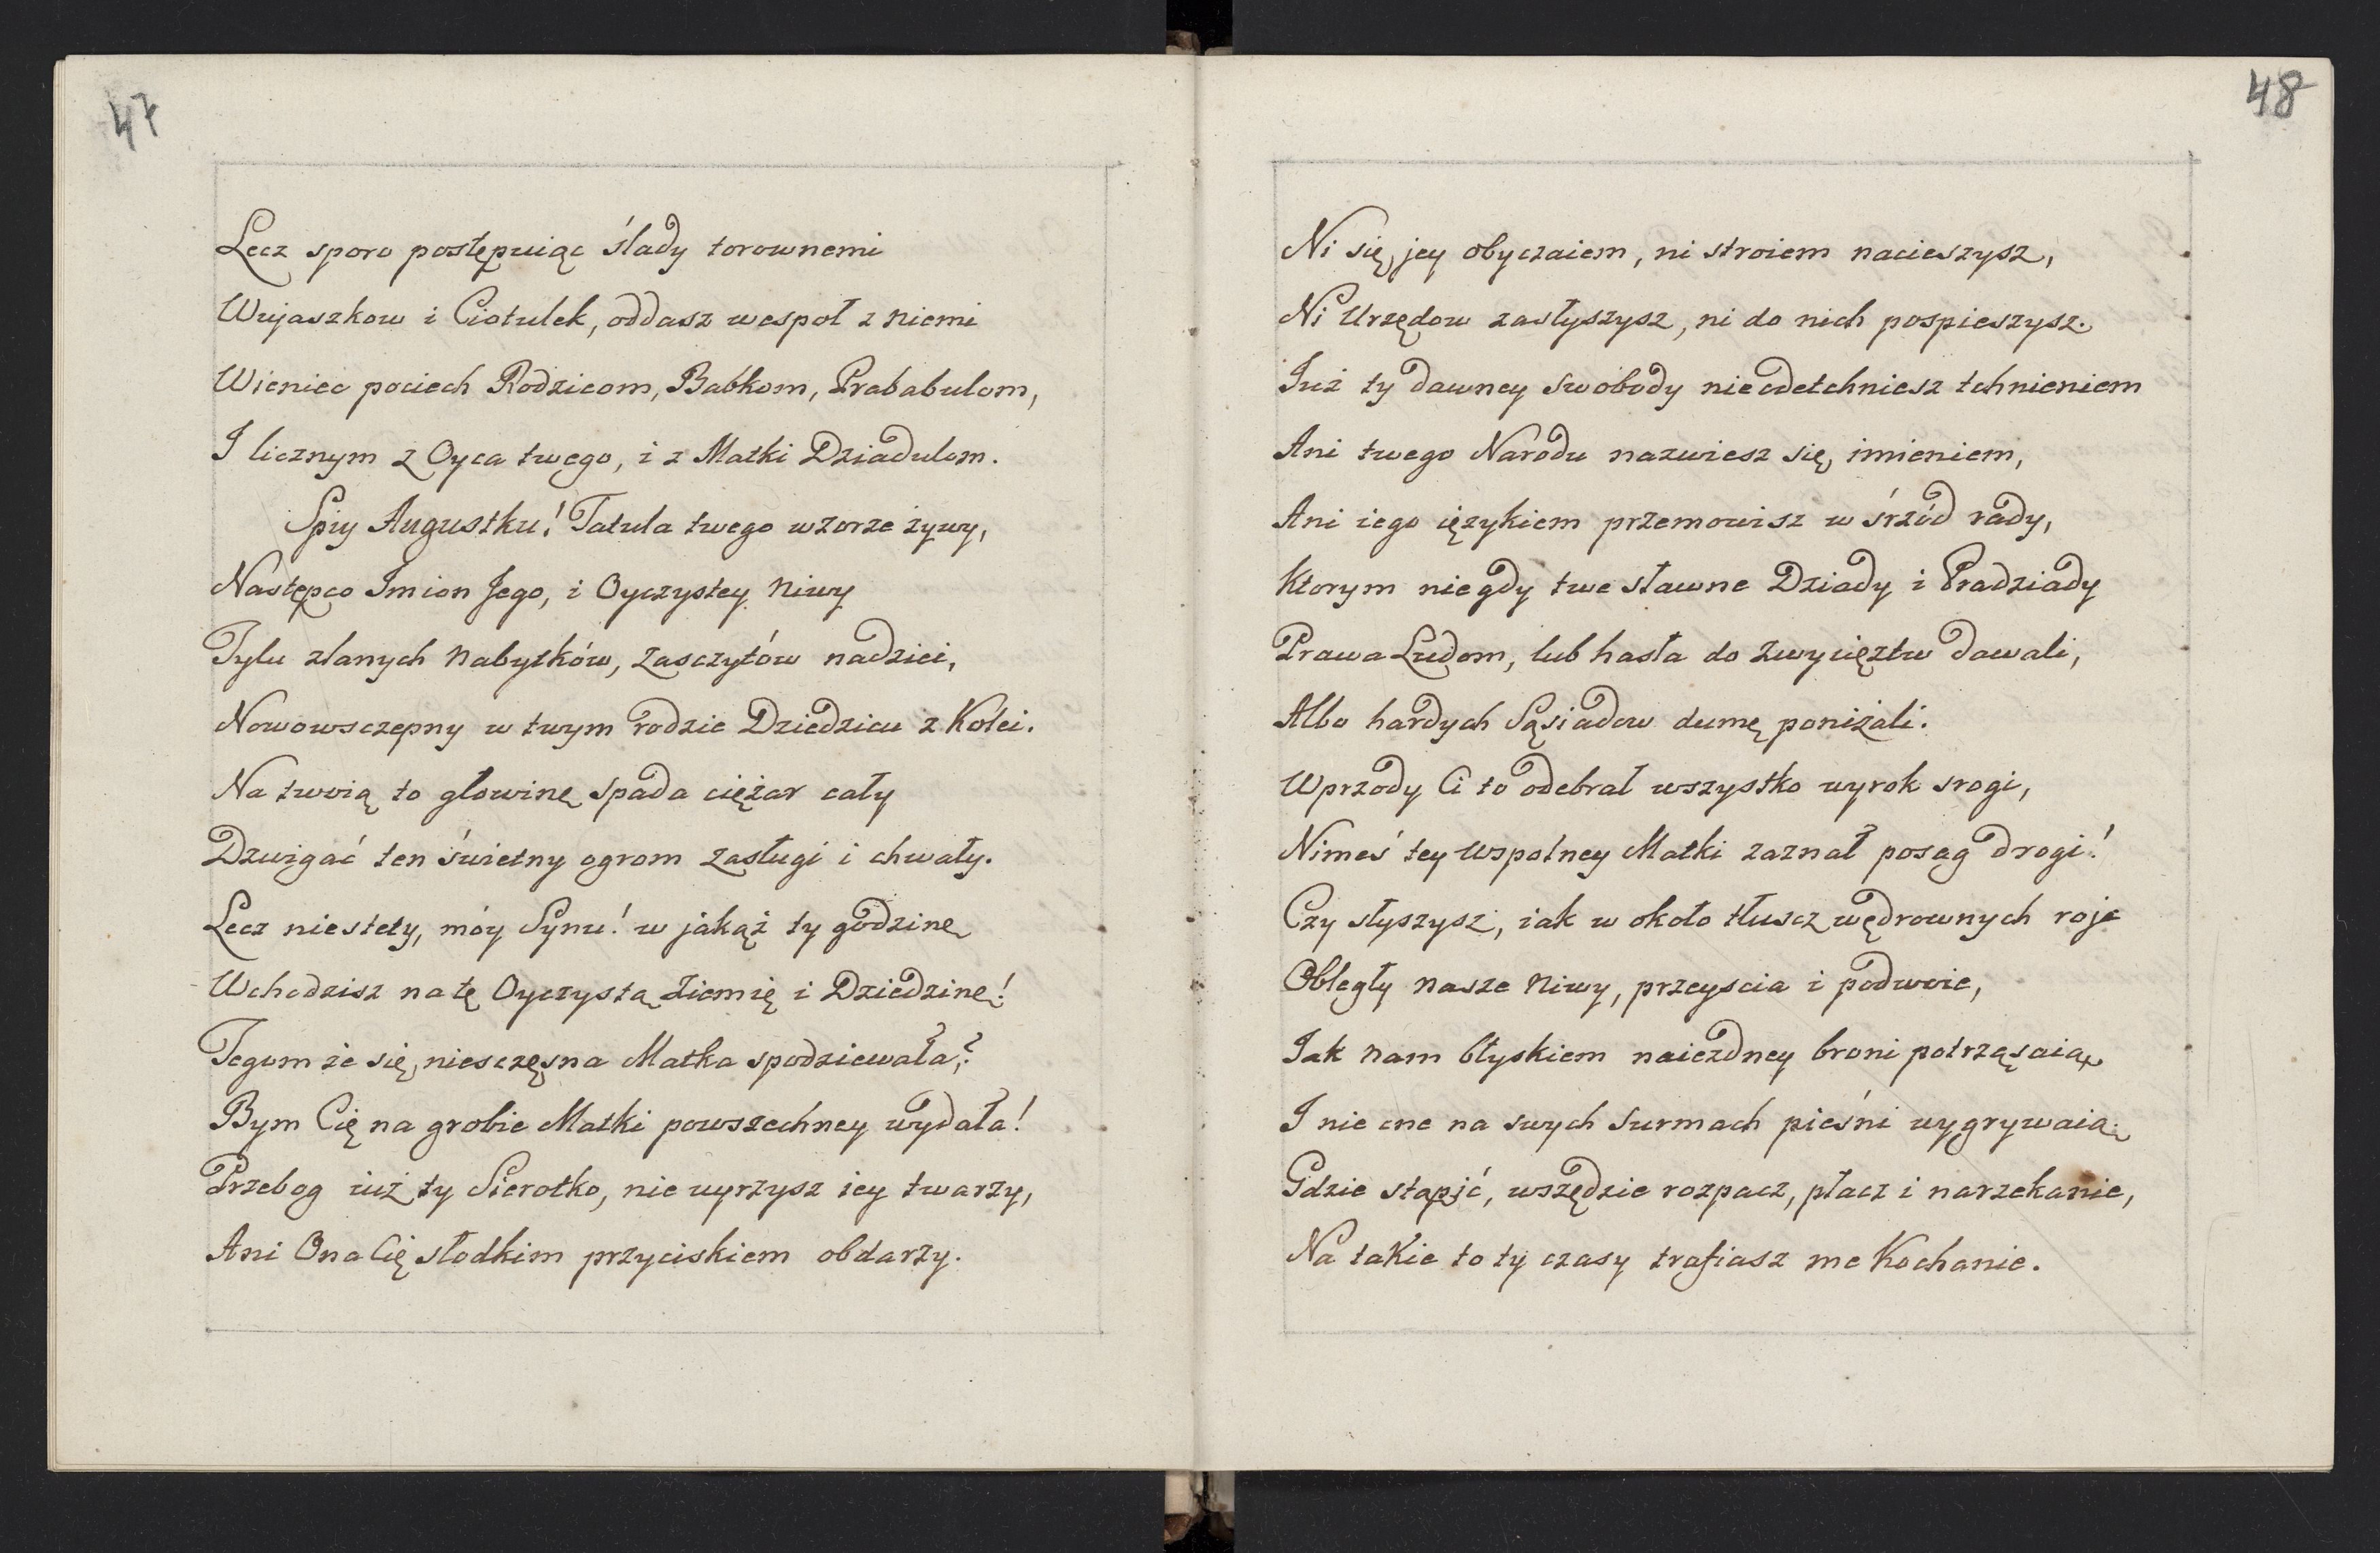 47
Lecz sporo postępuiąc ślady torownemi
Wujaszkow i Ciotulek, oddasz wespoł z niemi
Wieniec pociech Rodzicom, Babkom, Prababulom,
I licznym z Oyca twego, i z Matki Dziadulom.
Spiy Augustku! Tatula twego wzorze żywy,
Następco Imion Jego, i Oyczystey Niwy
Tylu zlanych Nabytków, Zasczytów nadziei,
Nowowsczepny w twym rodzie Dziedzicu z Kolei.
Na twoią to głowinę spada ciężar cały
Dzwigać ten świetny ogrom Zasługi i chwały.
Lecz niestety, móy Synu! w jakąż ty godzinę
Wchodzisz na tę Oyczystą Ziemię i Dziedzinę!
Tegom że się niesczęsna Matka spodziewała?
Bym Cię na grobie Matki powszechney wydała!
Przebog iuż ty Sierotko, nie uyrzysz iey twarzy,
Ani Ona Cię słodkim przyciskiem obdarzy.
48
Ni się jey obyczaiem, ni stroiem nacieszysz,
Ni Urzędow zasłyszysz, ni do nich pospieszysz.
Iuż ty dawney swobody nieodetchniesz tchnieniem
Ani twego Narodu nazwiesz się imieniem,
Ani iego ięzykiem przemowisz w śrzód rady,
Ktorym niegdy twe sławne Dziady i Pradziady
Prawa Ludom, lub hasła do Zwycięztw dawali,
Albo hardych Sąsiadow dumę poniżali.
Wprzody Ci to odebrał wszystko wyrok srogi,
Nimeś tey Wspolney Matki zaznał posag drogi!
Czy słyszysz, iak w około tłuscz wędrownych roje
Obległy nasze Niwy, przeyscia i podwoie,
Iak nam błyskiem naiezdney broni potrząsaią
I nie cne na swych Surmach pieśni wygrywaią.
Gdzie stąpić, wszędzie rozpacz, płacz i narzekanie,
Na takie to ty czasy trafiasz me Kochanie.